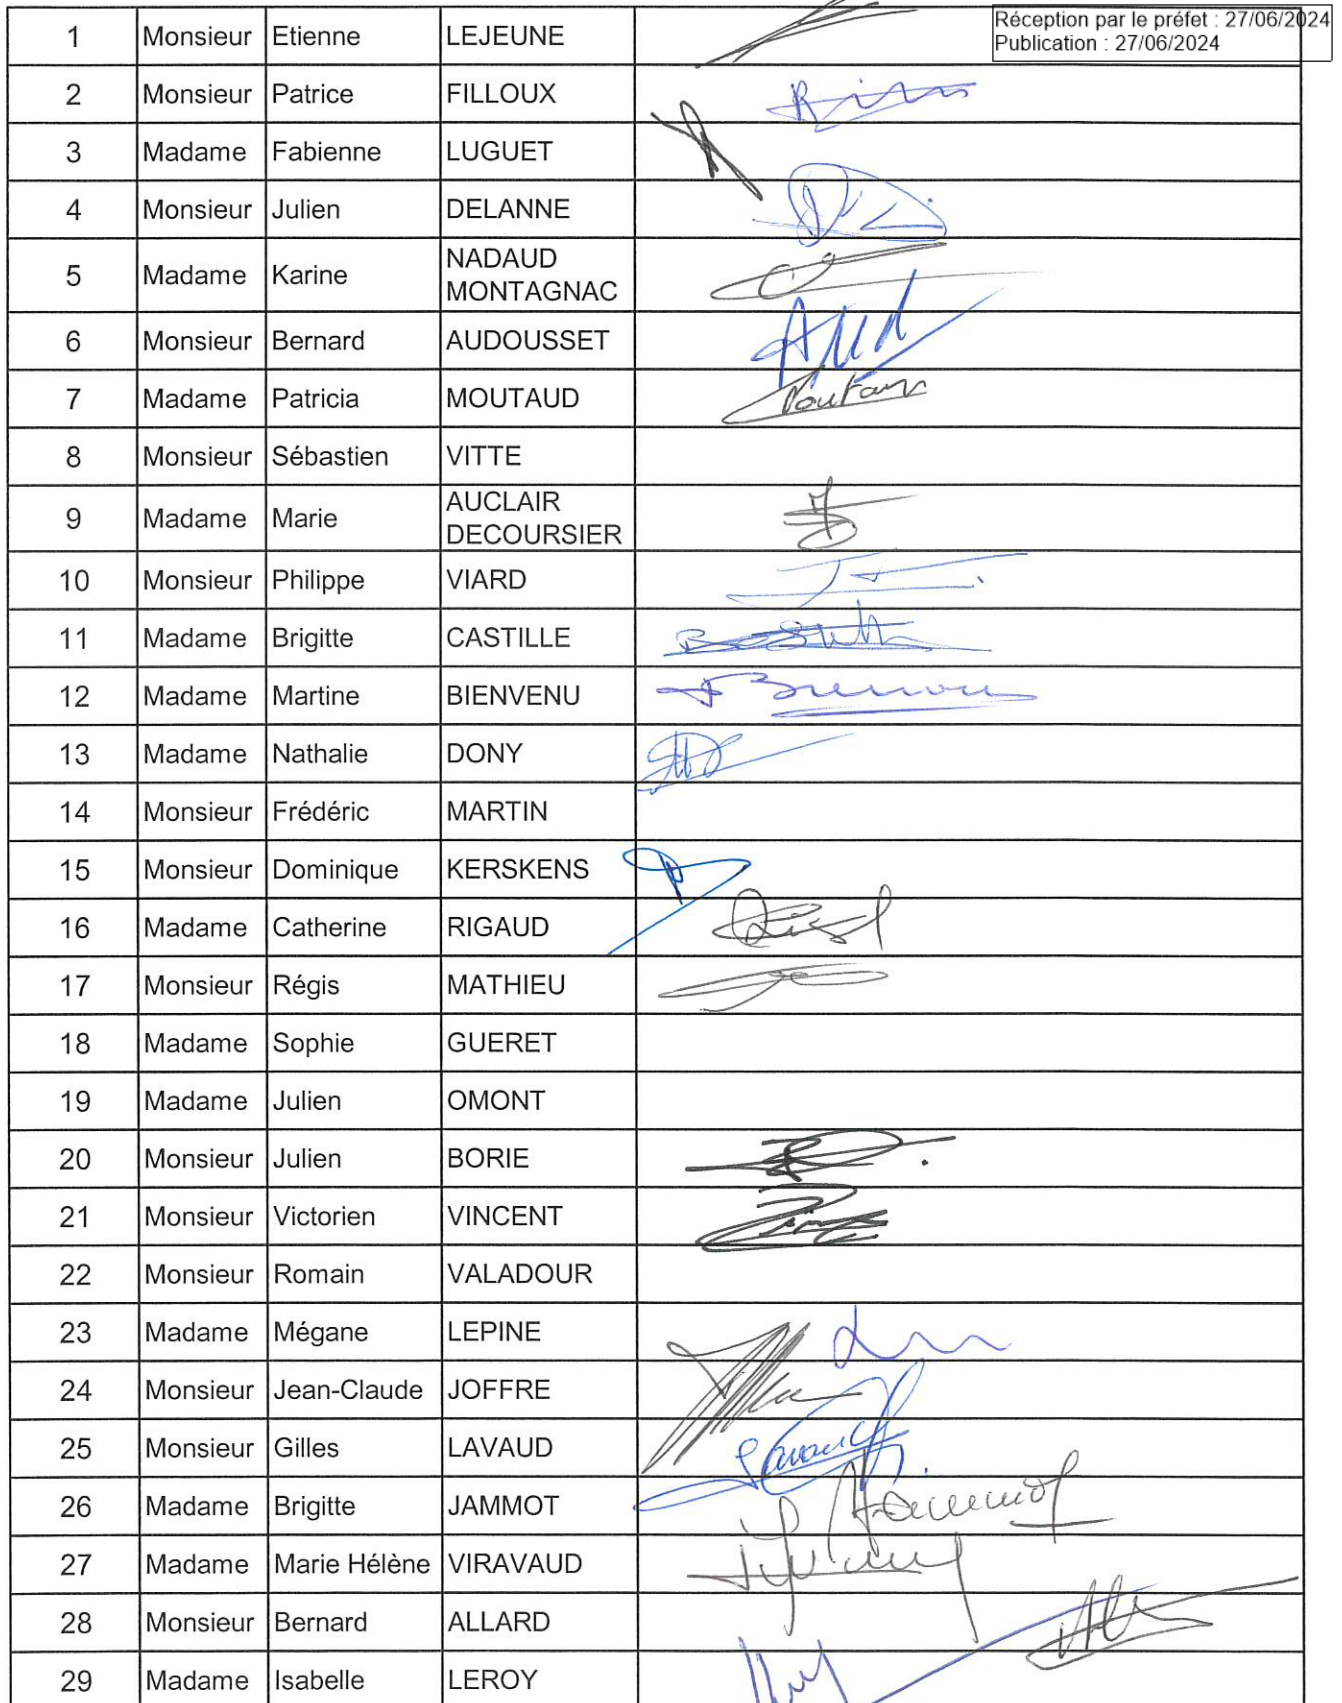 Réception par le préfet : 27/06/2024
Publication : 27/06/2024
1 Monsieur Etienne LEJEUNE
2 Monsieur Patrice FILLOUX
3 Madame Fabienne LUGUET
4 Monsieur Julien DELANNE
5 Madame Karine NADAUD
MONTAGNAC
6 Monsieur Bernard AUDOUSSET
7 Madame Patricia MOUTAUD
8 Monsieur Sébastien VITTE
9 Madame Marie AUCLAIR
DECOURSIER
10 Monsieur Philippe VIARD
11 Madame Brigitte CASTILLE
12 Madame Martine BIENVENU
13 Madame Nathalie DONY
14 Monsieur Frédéric MARTIN
15 Monsieur Dominique KERSKENS
16 Madame Catherine RIGAUD
17 Monsieur Régis MATHIEU
18 Madame Sophie GUERET
19 Madame Julien OMONT
20 Monsieur Julien BORIE
21 Monsieur Victorien VINCENT
22 Monsieur Romain VALADOUR
23 Madame Mégane LEPINE
24 Monsieur Jean-Claude JOFFRE
25 Monsieur Gilles LAVAUD
26 Madame Brigitte JAMMOT
27 Madame Marie Hélène VIRAVAUD
28 Monsieur Bernard ALLARD
29 Madame Isabelle LEROY